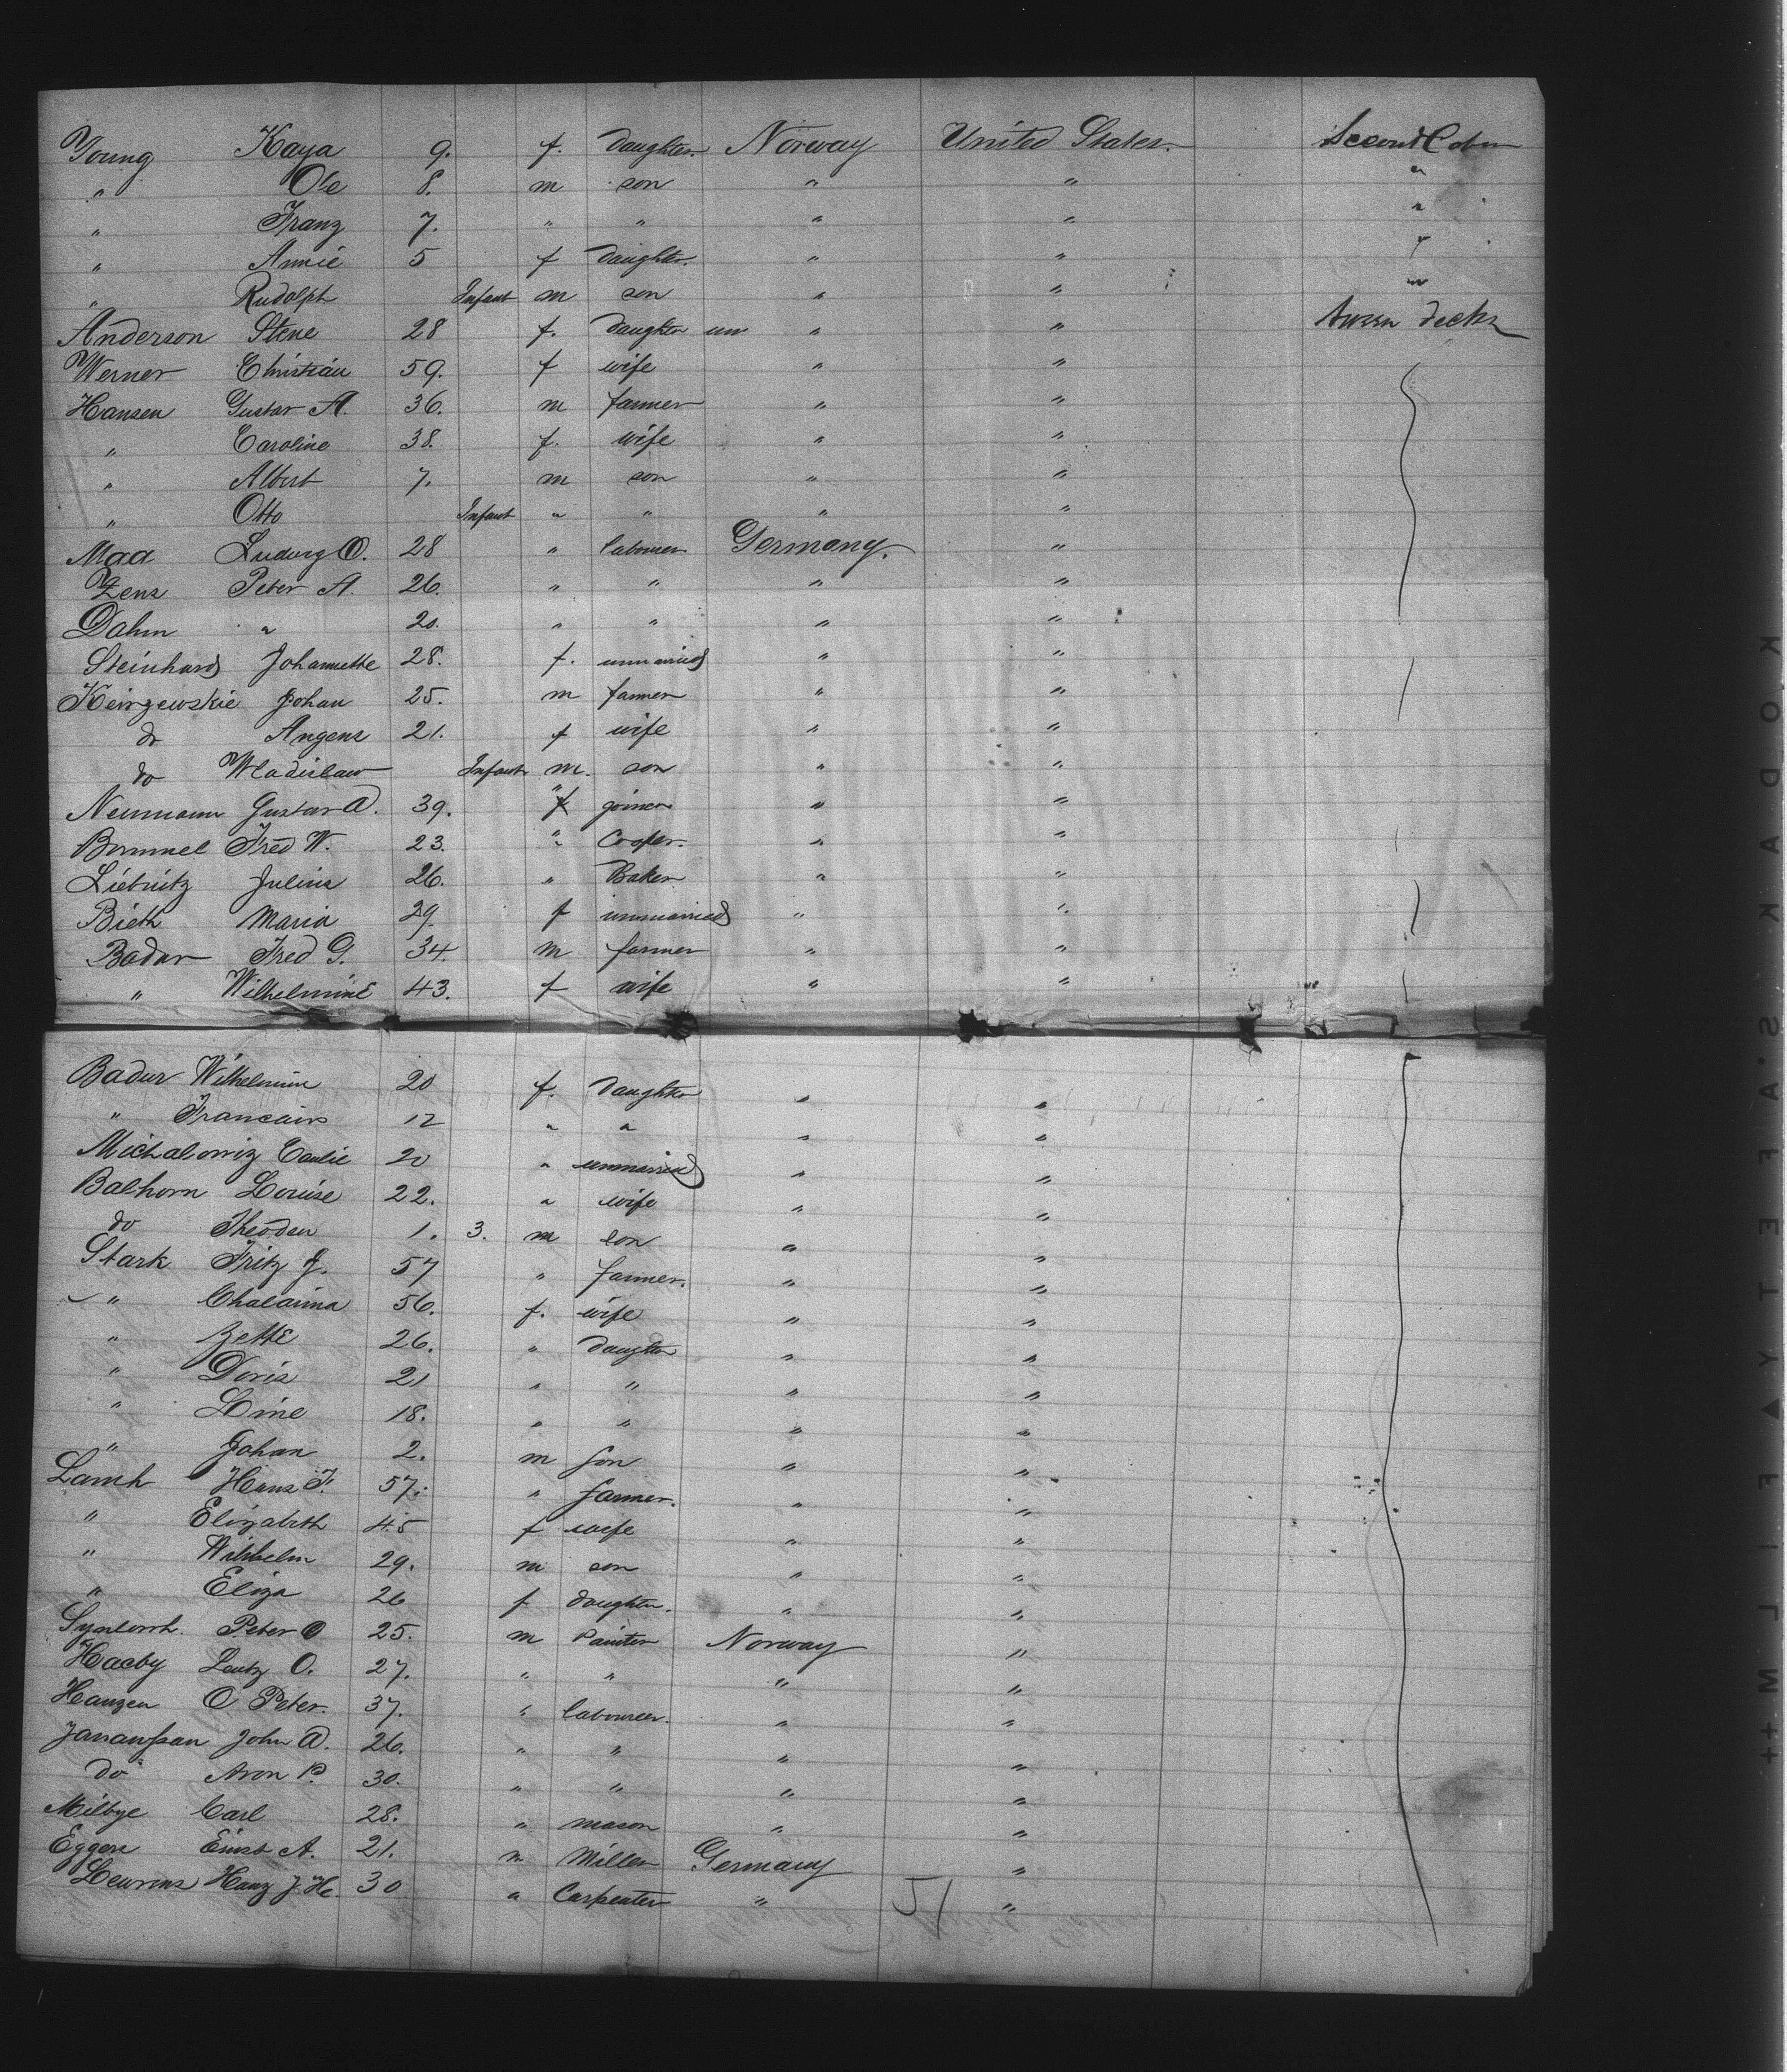 Young Kaya 9. f. Daughter. Norway United States. Second Cabin
" Ole 8. m son " " "
" Franz 7. " " " " "
" Annie 5 f Daughter. " " "
" Rudolph Infant m son " " "
Anderson Stene 28 f. Daughter un " " tween decks
Werner Christian 59. f wife " "
Hansen Gustav A. 36. m farmer " "
" Caroline 38. f. wife " "
" Albert 7. m son " "
" Otto Infant " " " "
Maa Ludwig O. 28 " labourer Germany. "
Zens Peter A. 26. " " " "
Dahm " 20. " " " "
Steinhard Johannette 28. f. unmarried " "
Keirzewskie Johan 25. m farmer " "
do Angens 21. f wife " "
do Wladislaw Infant m. son " "
Neumann Gustav A. 39. " joiner " "
Bommel Fred W. 23. " Cooper. " "
Liebnitz Julius 26. " Baker " "
Bieth Maria 29. f unmarried " "
Badur Fred G. 34. m farmer " "
" Wilhelmine 43. f wife " "
Badur Wilhelmine 20 f. Daughter " "
" 12 " " " "
20 " unmarried " "
Balhorn Louise 22. " wife " "
do Theoder 1. 3. m son " "
Stark Fritz J. 57 " farmer. " "
" 56. f. wife " "
" Bette 26. " Daughter " "
" Doris 21 " " " "
" Line 18. " " " "
" Johan 2. m son " "
Lamh Hans F. 57. " farmer. " "
" Elizabeth 45 f wife " "
" Wilhelm 29. m son " "
" Eliza 26 f daughter. " "
Peter O 25. m Painter Norway "
Haeby O. 27. " " " "
Hanzen O Peter. 37. " labourer. " "
John A. 26. " " " "
do Aron P. 30. " " " "
Milbye Carl 28. " mason " "
Eggers Ernst A. 21. m Miller Germany "
Hanz J. H. 30 " Carpenter " 51 "
KODAK S'AFETY FILM